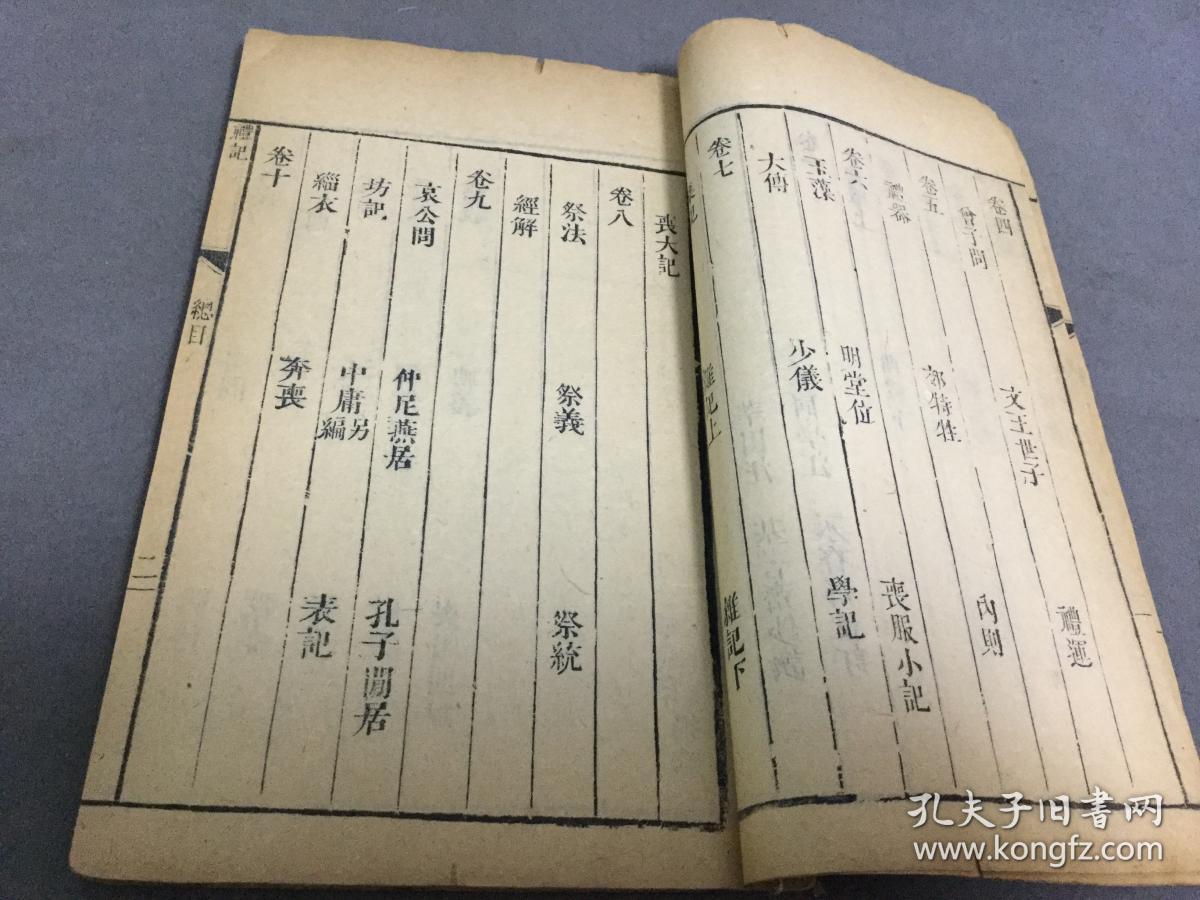 卷四
曾子問 文王世子 禮運
卷五
禮器 郊特牲 內則
卷六
玉藻 明堂位 喪服小記
大傳 少儀 學記
卷七
雜記上 雜記下
喪大記
卷八
祭法 祭義 祭統
經解
卷九
哀公問 仲尼燕居 孔子閒居
坊記 中庸另編 表記
緇衣 奔喪
卷十
禮記 總目 二
孔夫子旧书网
www.kongfz.com